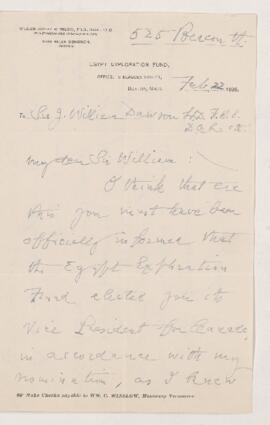 525 Beacon St.
EGYPT EXPLORATION FUND,
OFFICE, 
BOSTON, MASS. Feb. 22
To Sir J. William Dawson
My dear Sir William:
I think that ere
this you must have been
officially informed that
the Egypt Exploration
Fund elected you its
Vice President for Canada,
in accordance with my
nomination, as I knew
Make Checks payable to WM. C. WINSLOW, Honorary Treasurer